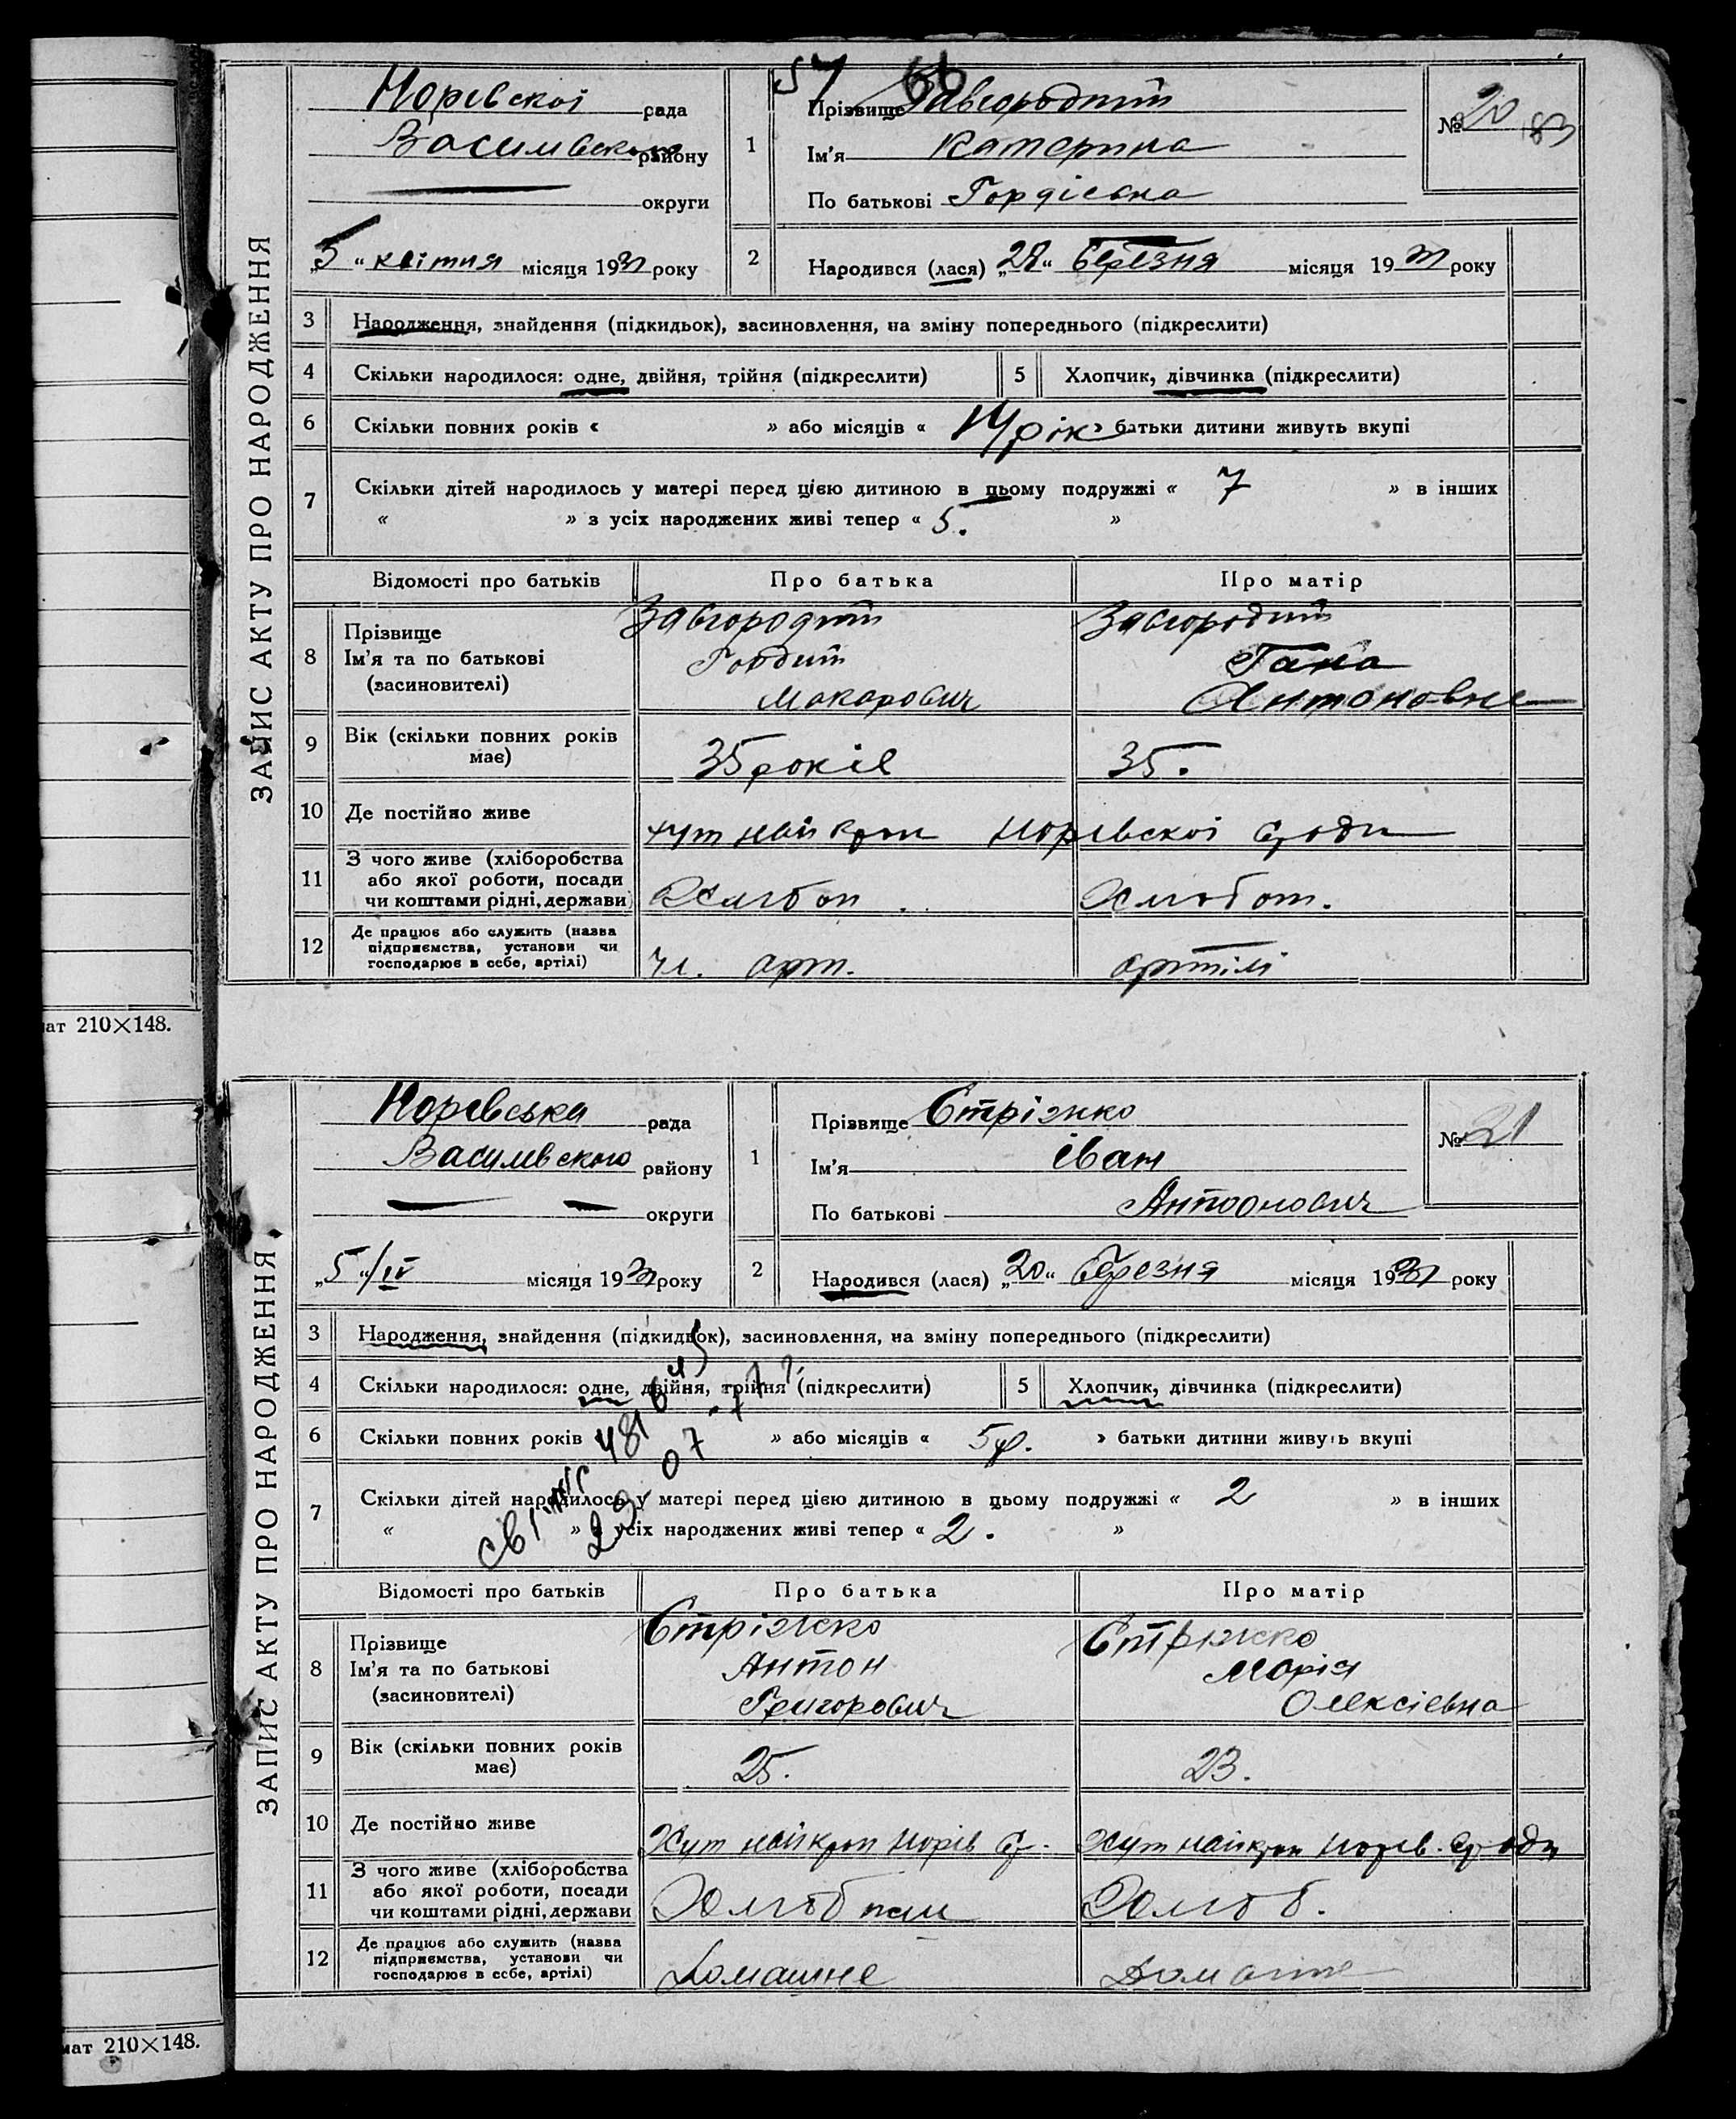 57 66
Норевскоі рада
Василевського району
округи
5 " квітня місяця 1931 року
1
Прізвище Завгородний
Ім'я Катерина
По батькові Гордієвна
№ 20
183
2
Народився (лася) „28" березня місяця 1931 року
ЗАПИС АКТУ ПРО НАРОДЖЕННЯ
3 Народження, знайдення (підкидьок), засиновлення, на зміну попереднього (підкреслити)
4 Скільки народилося: одне, двійня, трійня (підкреслити)
5 Хлопчик, дівчинка (підкреслити)
6 Скільки повних років « » або місяців « 14 рік » батьки дитини живуть вкупі
7 Скільки дітей народилось у матері перед цією дитиною в цьому подружжі « 7 » в інших
« » з усіх народжених живі тепер « 5. »
Відомості про батьків Про батька Про матір
8
Прізвище
Ім'я та по батькові
(засиновителі)
Завгородний
Гордий
Макарович
Завгородний
Гана
Антоновне
9
Вік (скільки повних років
має)
35 років
35.
10 Де постійно живе
хут Норевскоі с/ради
11
З чого живе (хліборобства
або якої роботи, посади
чи коштами рідні, держави)
12
Де працює або служить (назва
підприємства, установи чи
господарює в себе, артілі)
чл. арт.
артілі
ат 210×148.
Норевська рада
Василевского району
округи
„5"/IV місяця 1931 року
1
Прізвище Стріжко
Ім'я Іван
По батькові Антоонович
№ 21
2
Народився (лася) „20" березня місяця 1931 року
ЗАПИС АКТУ ПРО НАРОДЖЕННЯ
3 Народження, знайдення (підкидьок), засиновлення, на зміну попереднього (підкреслити)
4 Скільки народилося: одне, двійня, трійня (підкреслити)
5 Хлопчик, дівчинка (підкреслити)
6 Скільки повних років « » або місяців « 5 р. » батьки дитини живуть вкупі
7 Скільки дітей народилось у матері перед цією дитиною в цьому подружжі « 2 » в інших
« » з усіх народжених живі тепер « 2. »
Відомості про батьків Про батька Про матір
8
Прізвище
Ім'я та по батькові
(засиновителі)
Стріжко
Антон
Григорович
Стрижко
Марія
Олексіевна
9
Вік (скільки повних років
має)
25.
23.
10 Де постійно живе
Хут Норів с/
Хут Норев. с/ради
11
З чого живе (хліборобства
або якої роботи, посади
чи коштами рідні, держави
12
Де працює або служить (назва
підприємства, установи чи
господарює в себе, артілі)
Домашне
Домашне
мат 210×148.